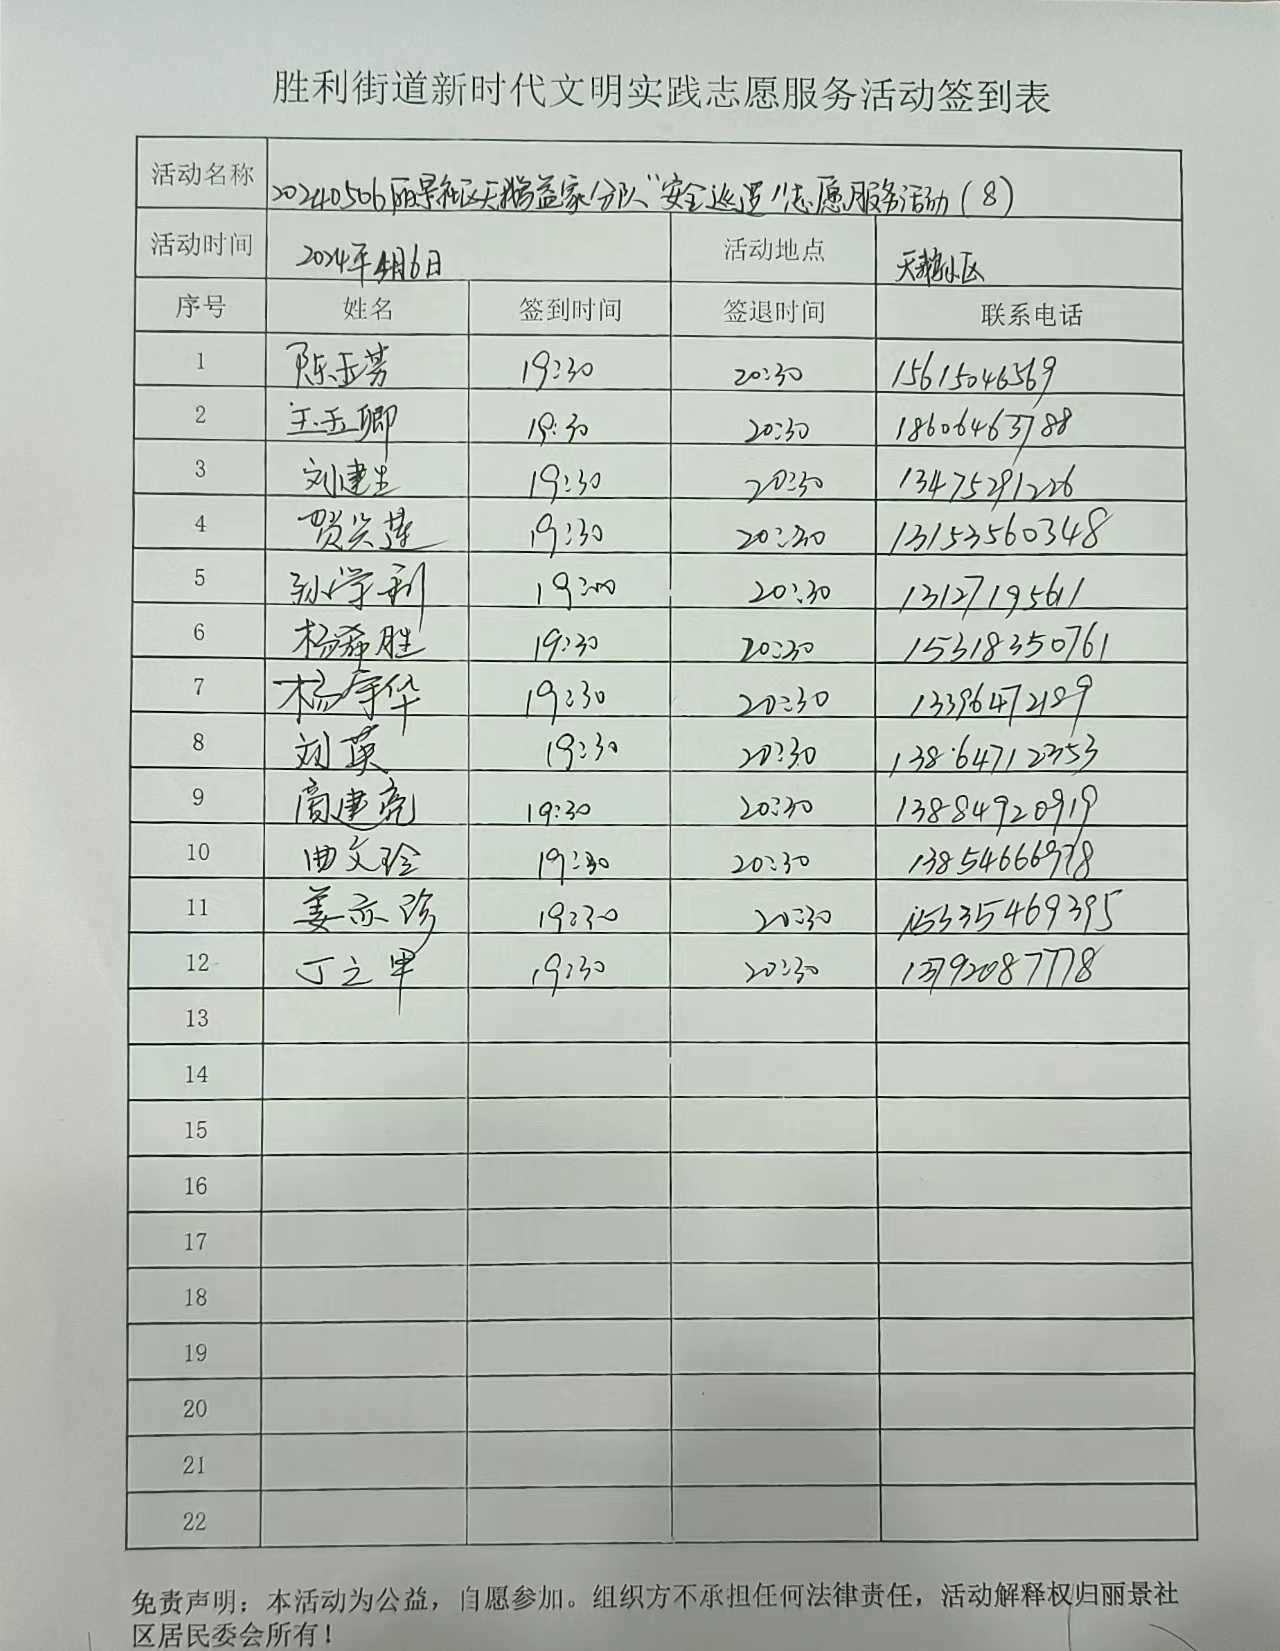 胜利街道新时代文明实践志愿服务活动签到表
活动名称 20240506丽景社区天鹅益家分队"安全巡逻"志愿服务活动(8)
活动时间 2024年5月6日 活动地点 天鹅小区
序号 姓名 签到时间 签退时间 联系电话
1 陈玉芳 19:30 20:30 15615046569
2 王玉卿 19:30 20:30 18606463788
3 刘建生 19:30 20:30 13475291226
4 贾兴莲 19:30 20:30 13153560348
5 孙学利 19:00 20:30 13127195611
6 杨希胜 19:30 20:30 15318350761
7 杨守华 19:30 20:30 13396472189
8 刘英 19:30 20:30 13864712353
9 高建亮 19:30 20:30 13884920919
10 曲文玲 19:30 20:30 13854666978
11 姜亦珍 19:30 20:30 15335469395
12 丁立甲 19:30 20:30 13792087778
13
14
15
16
17
18
19
20
21
22
免责声明：本活动为公益，自愿参加。组织方不承担任何法律责任，活动解释权归丽景社
区居民委会所有！